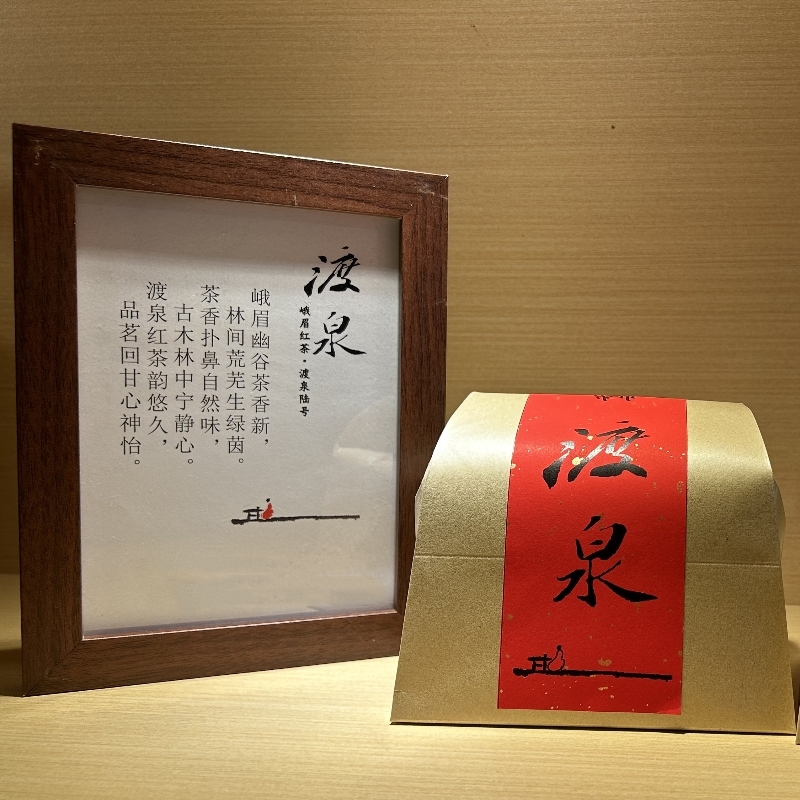 渡泉
峨眉红茶·渡泉陆号
峨眉幽谷茶香新，
林间荒芜生绿茵。
茶香扑鼻自然味，
古木林中宁静心。
渡泉红茶韵悠久，
品茗回甘心神怡。
渡泉